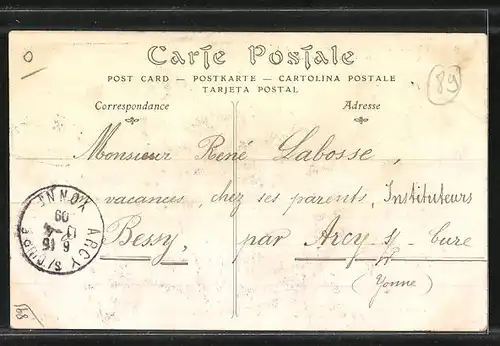 Carte Postale
POST CARD — POSTKARTE — CARTOLINA POSTALE
TARJETA POSTAL
89
Correspondance
Adresse
Monsieur René Labosse,
en vacances, chez ses parents, Instituteurs
Bessy, par Arcy s/ Cure
(Yonne)
ARCY S/CURE
YONNE
6 15
11-4
09
89